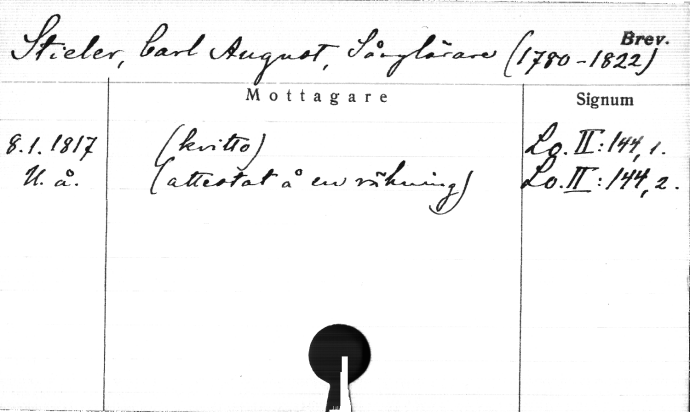 Brev.
Stieler, Carl August, Sånglärare (1780-1822)
Mottagare Signum
8.1.1817 (kvitto) Lo. II:144, 1.
U. å. (attestat å en räkning) Lo. II:144, 2.